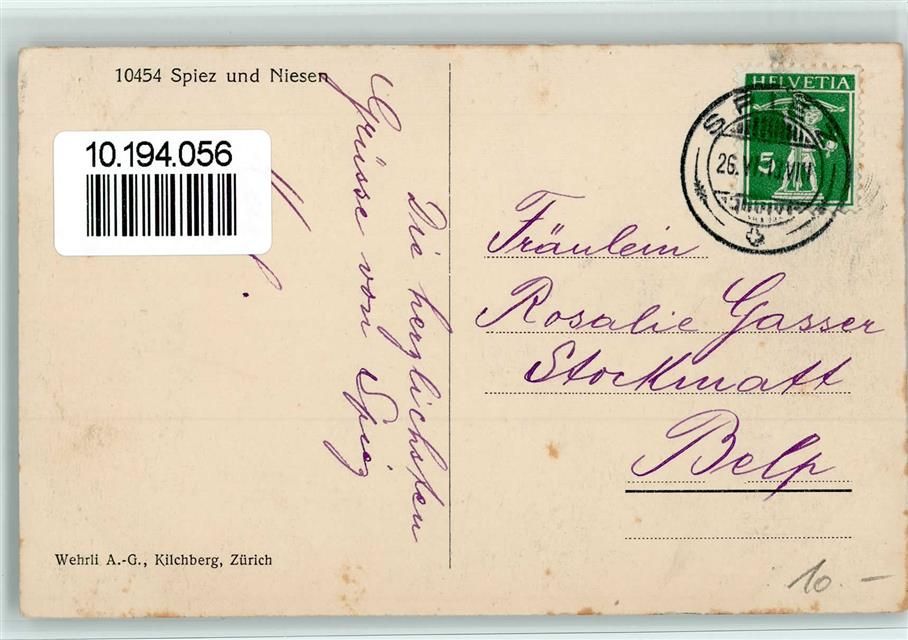 10454 Spiez und Niesen
10.194.056
Die herzlichsten
Grüsse von Spiez
HELVETIA
5
SPIEZ
26. VI.
Fräulein
Rosalie Gasser
Stockmatt
Belp
Wehrli A.-G., Kilchberg, Zürich
10.–